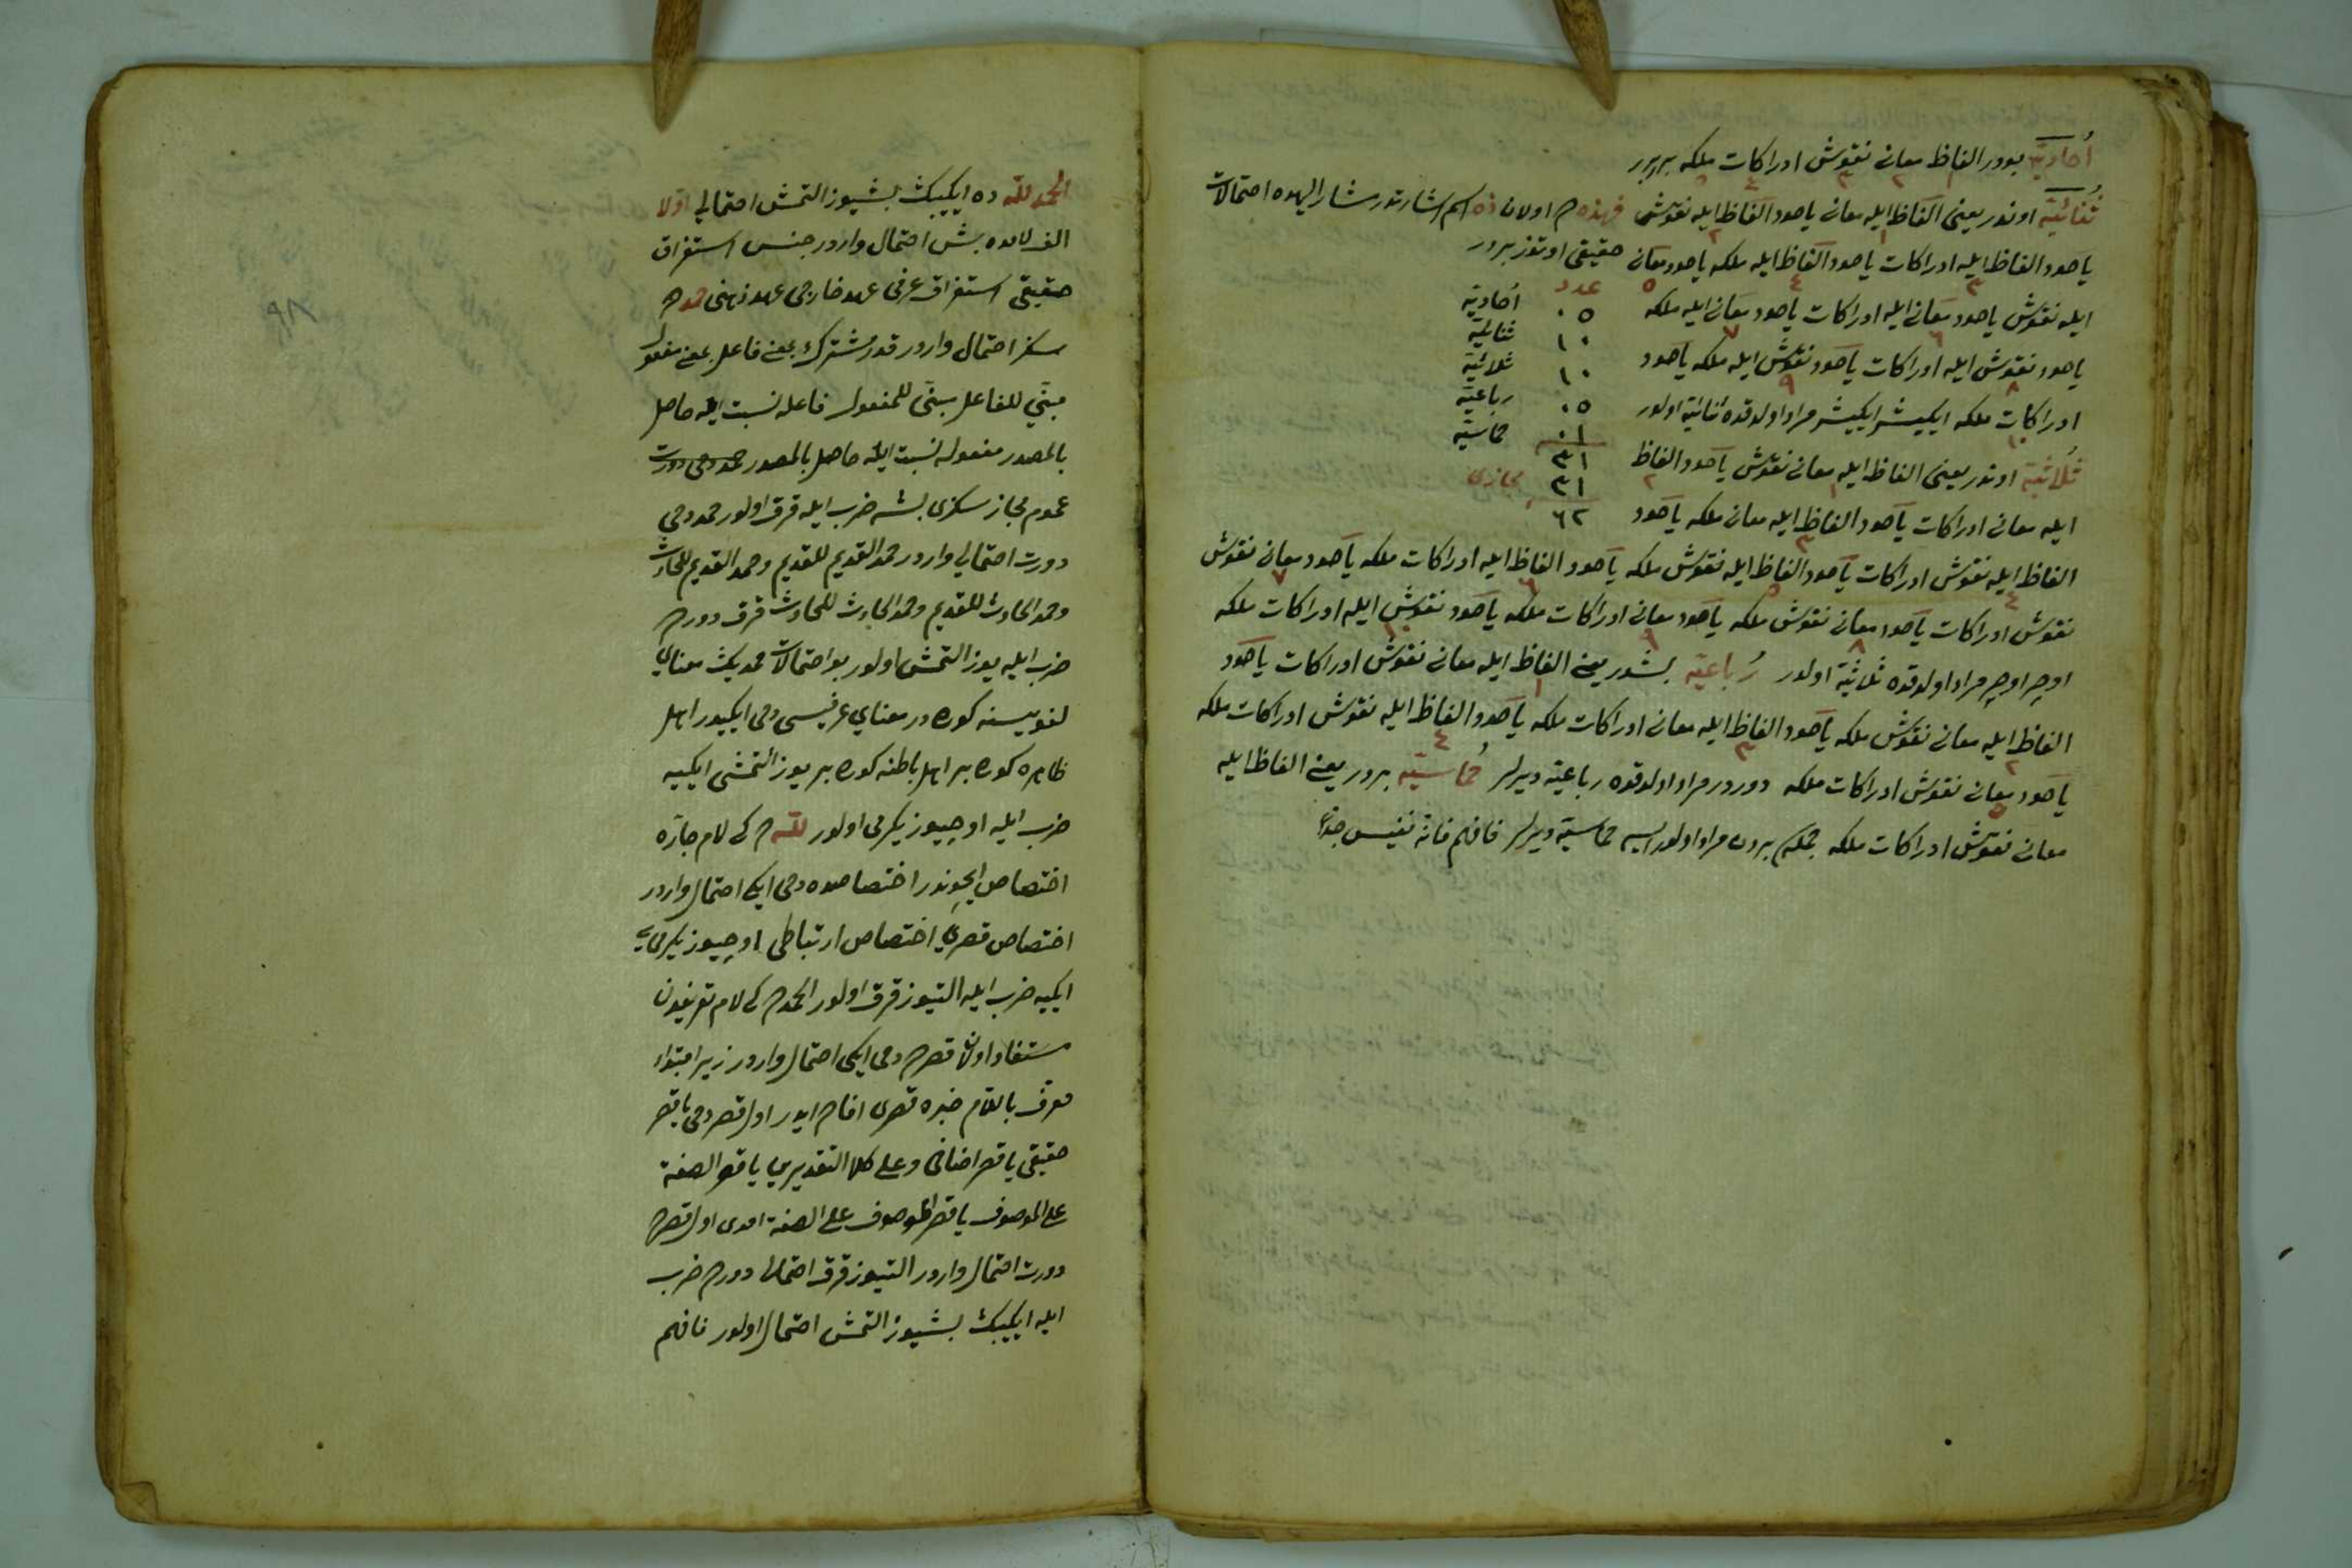 اُحاديّه بودر الفاظ معانى نقوش ادراكات ملكه بربرر
ثُنائيّه اوندر يعنى الفاظ ايله معانى ياخود الفاظ ايله نقوش فهذه ده اولان ذه اسم اشارتدر مشار اليهده احتمالات
ياخود الفاظ ايله ادراكات ياخود الفاظ ايله ملكه ياخود معانى حقيقى اوتوز بردر
ايله نقوش ياخود معانى ايله ادراكات ياخود معانى ايله ملكه
ياخود نقوش ايله ادراكات ياخود نقوش ايله ملكه ياخود
ادراكات ملكه ايكيشر ايكيشر مراد اولدقده ثنائيّه اولور
عدد
٠٥ اُحاديّه
١٠ ثنائيّه
١٠ ثلاثيّه
٠٥ رباعيّه
٠١ خماسيّه
٣١
٣١ مجازى
٦٢
ثُلاثيّه اوندر يعنى الفاظ ايله معانى نقوش ياخود الفاظ
ايله معانى ادراكات ياخود الفاظ ايله معانى ملكه ياخود
الفاظ ايله نقوش ادراكات ياخود الفاظ ايله نقوش ملكه ياخود الفاظ ايله ادراكات ملكه ياخود معانى نقوش
نقوش ادراكات ياخود معانى نقوش ملكه ياخود معانى ادراكات ملكه ياخود نقوش ايله ادراكات ملكه
اوچر اوچر مراد اولدقده ثلاثيّه اولور رُباعيّه بشدر يعنى الفاظ ايله معانى نقوش ادراكات ياخود
الفاظ ايله معانى نقوش ملكه ياخود الفاظ ايله معانى ادراكات ملكه ياخود الفاظ ايله نقوش ادراكات ملكه
ياخود معانى نقوش ادراكات ملكه دوردر مراد اولدقده رباعيّه ديرلر خُماسيّه بردر يعنى الفاظ ايله
معانى نقوش ادراكات ملكه جمله بردن مراد اولور ايسه خماسيّه ديرلر فافهم فانّه نفيس جدّا
الحمد للّه ده ايكيبك بشيوز التمش احتمالى اوّلا
الف لامده بش احتمال واردر جنس استغراق
حقيقى استغراق عرفى عهد خارجى عهد ذهنى حمدده
سكز احتمال واردر قدر مشترك بمعنى فاعل بمعنى مفعول
مبنىّ للفاعل مبنىّ للمفعول فاعله نسبت ايله حاصل
بالمصدر مفعوله نسبت ايله حاصل بالمصدر حمد دخى دورت
عموم مجاز سكزى بشه ضرب ايله قرق اولور حمد دخى
دورت احتمالى واردر حمد القديم للقديم وحمد القديم للحادث
وحمد الحادث للقديم وحمد الحادث للحادث قرق دورده
ضرب ايله يوز التمش اولور بو احتمالات حمدك معناى
لغويسنه كوره در معناى عرفيسى دخى ايكيدر اهل
ظاهره كوره بر اهل باطنه كوره بر يوز التمشى ايكيه
ضرب ايله اوچيوز يكرمى اولور للّه ده كى لام جارّه
اختصاص ايچوندر اختصاصده دخى ايكى احتمال واردر
اختصاص قصرى اختصاص ارتباطى اوچيوز يكرمى يى
ايكيه ضرب ايله التيوز قرق اولور الحمدده كى لام تعريفدن
مستفاد اولان قصرده دخى ايكى احتمال واردر زيرا مبتدا
معرف باللام خبره قصرى افاده ايدر اول قصر دخى يا قصر
حقيقى يا قصر اضافى وعلى كلا التقديرين يا قصر الصفة
على الموصوف يا قصر الموصوف على الصفة امدى اول قصرده
دورت احتمال واردر التيوز قرق احتمالى دورده ضرب
ايله ايكيبك بشيوز التمش احتمال اولور فافهم